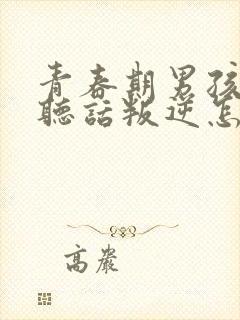 青春期男孩
聽話叛逆怎
高嚴